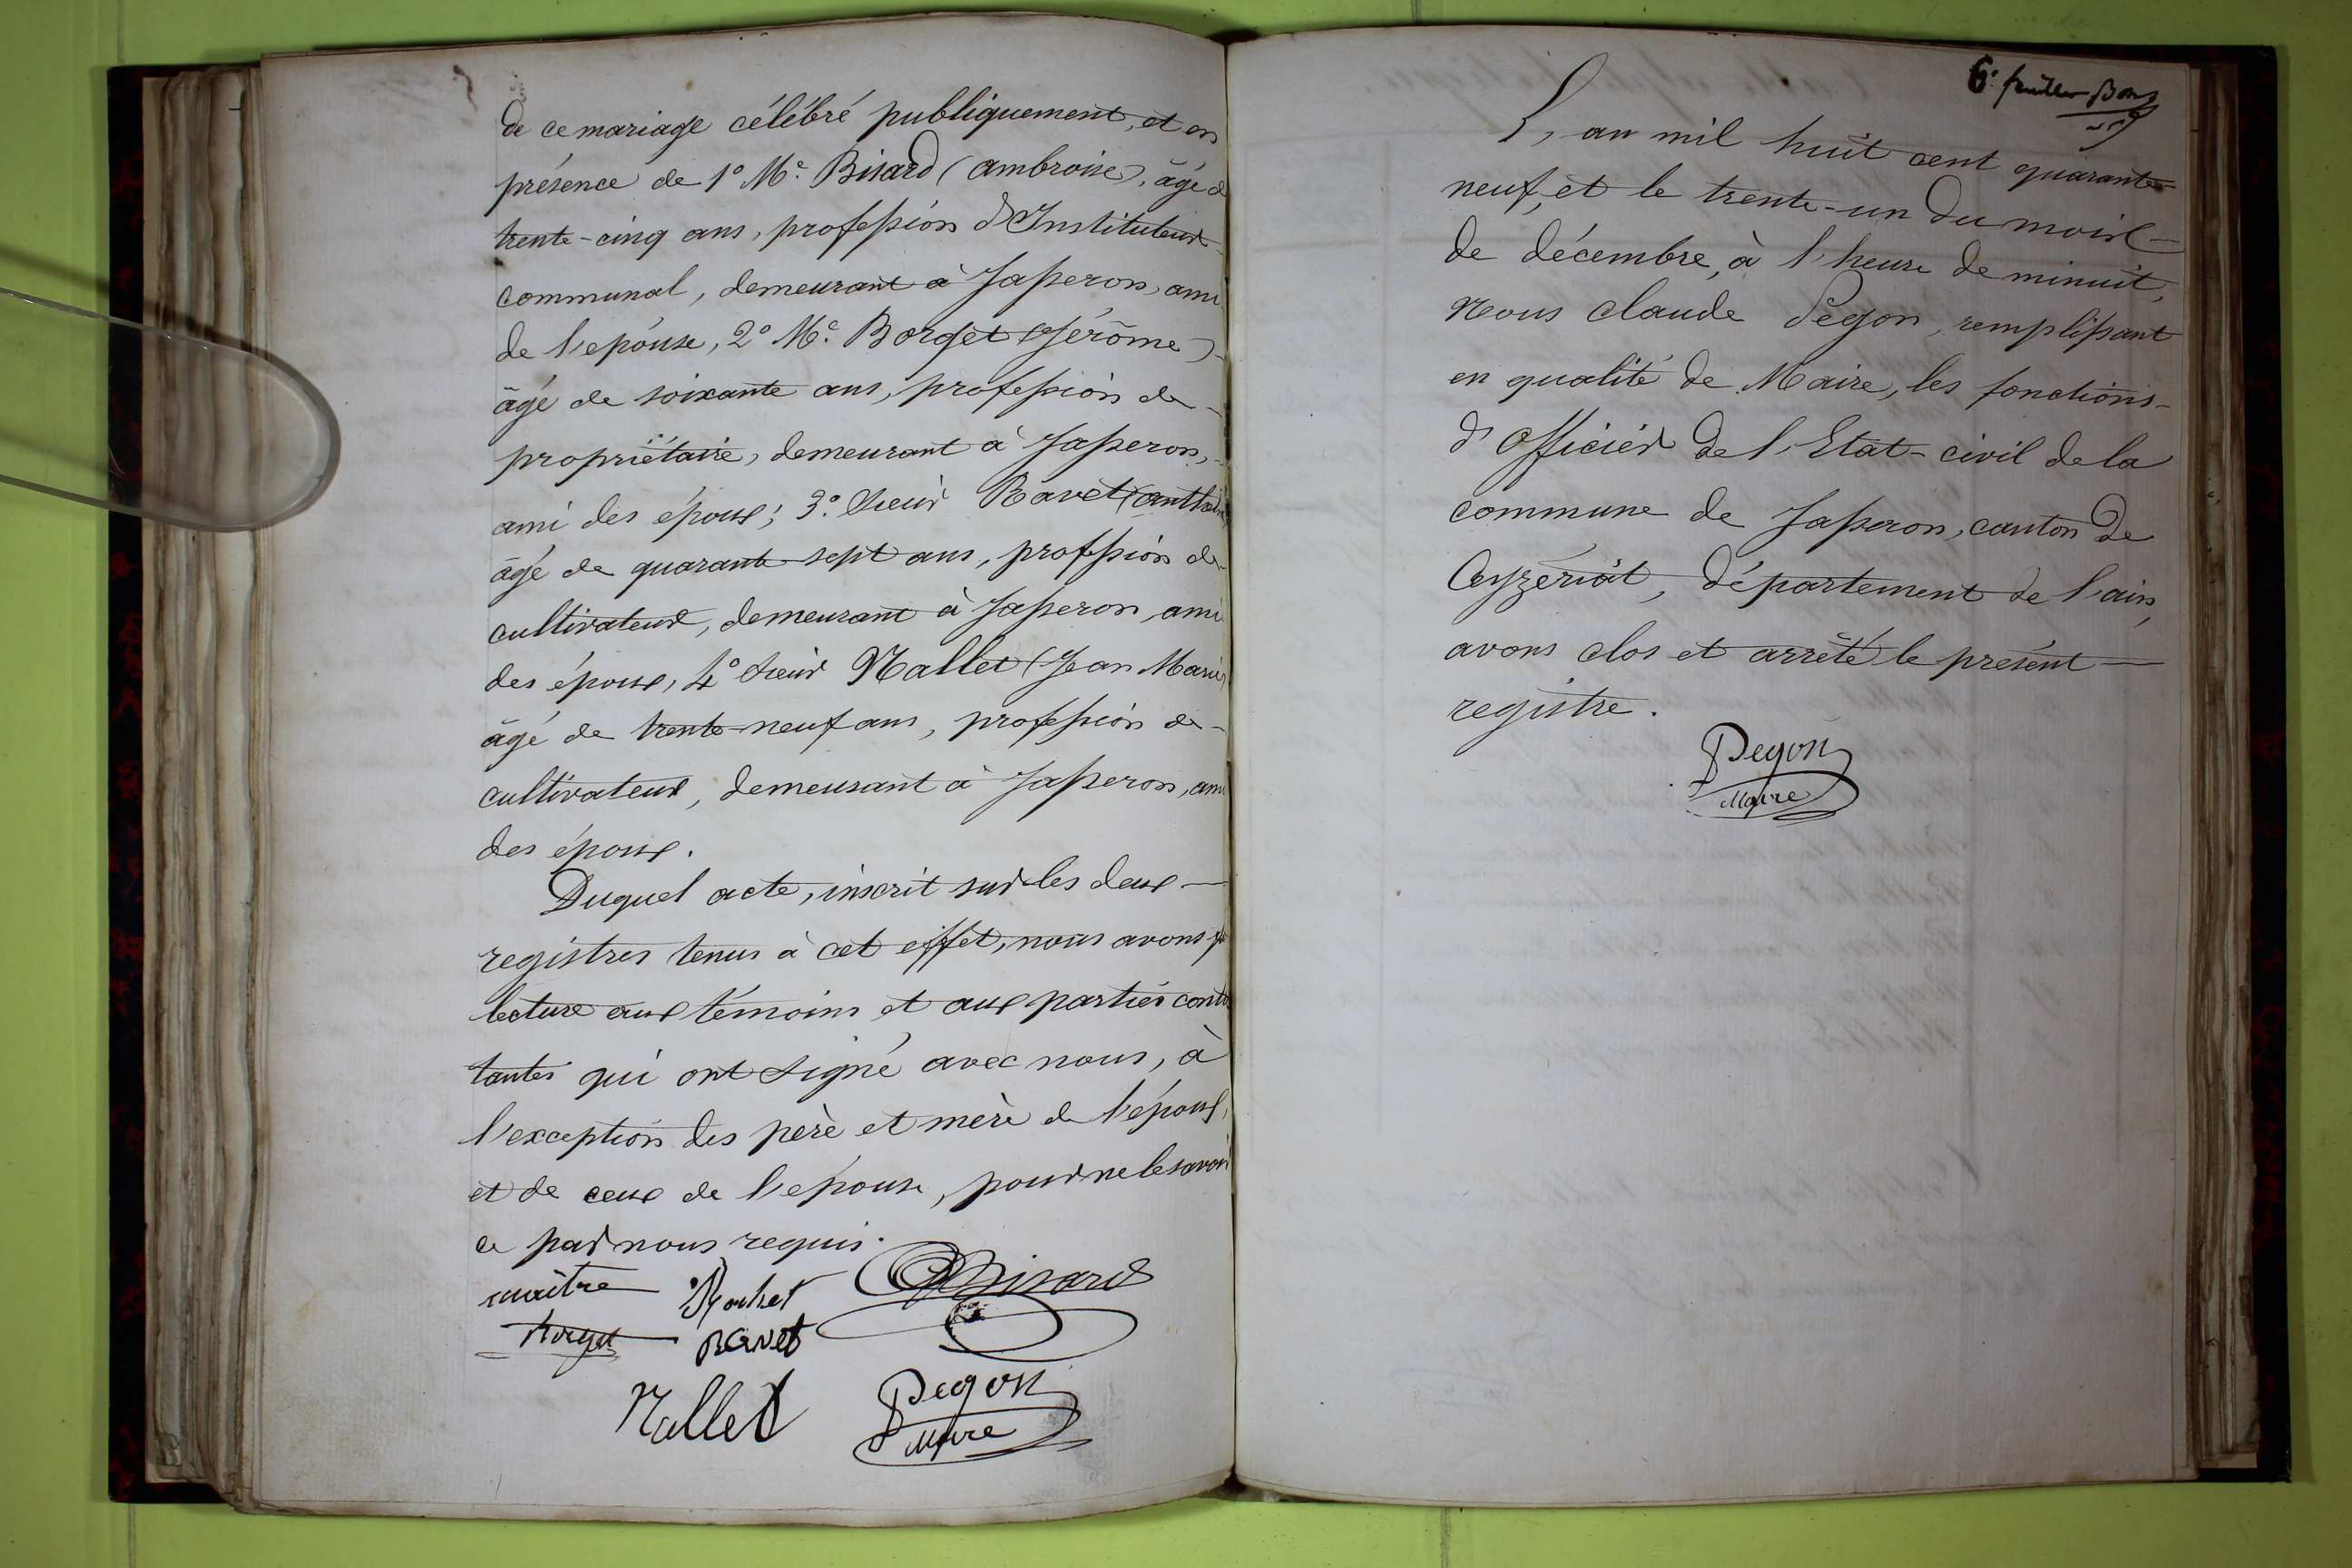 de ce mariage célébré publiquement, et en
présence de 1° Mr. Bisard (ambroise), âgé d
trente-cinq ans, profession d'Instituteur
communal, demeurant à Jasseron, ami
de l'épouse, 2° Mr. Borget (Jérôme)
âgé de soixante ans, profession de
propriétaire, demeurant à Jasseron,
ami des époux; 3° Sieur Ravet
âgé de quarante-sept ans, profession de
cultivateur, demeurant à Jasseron, ami
des époux, 4° Sieur Nallet (Jean Marie)
âgé de trente-neuf ans, profession de
cultivateur, demeurant à Jasseron, ami
des époux.
Duquel acte, inscrit sur les deux
registres tenus à cet effet, nous avons
lecture aux témoins et aux parties cont
tantes qui ont signé avec nous, à
l'exception des père et mère de l'époux,
et de ceux de l'épouse, pour ne le savoir
ce par nous requis.
maître Rouhet Bisard
Borget Ravet
Nallet Pegon
Maire
6e feuillet
L'an mil huit cent quarante
neuf, et le trente-un du mois
de décembre, à l'heure de minuit,
Nous Claude Pegon, remplissant
en qualité de Maire, les fonctions
d'Officier de l'Etat-civil de la
commune de Jasseron, canton de
Ceyzériat, département de l'ain,
avons clos et arrêté le présent
registre.
Pegon
Maire